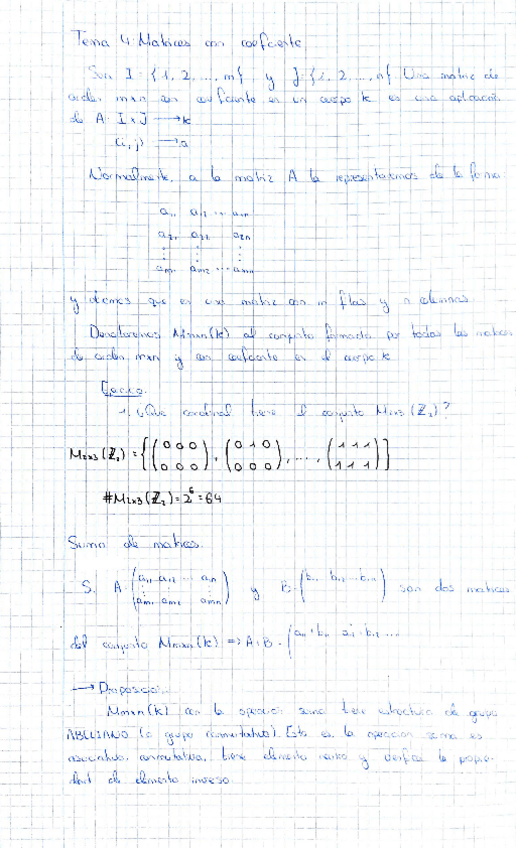 Tema 4: Matrices con coeficiente
Sean I = {1, 2, ..., m} y J = {1, 2, ..., n} Una matriz de
orden mxn con coeficiente en un cuerpo k es una aplicación
de A: I x J → k
(i, j) → a
Normalmente, a la matriz A la representaremos de la forma:
a₁₁ a₁₂ ... a₁ₙ
a₂₁ a₂₂ a₂ₙ
⋮ ⋮ ⋮
aₘ₁ aₘ₂ ... aₘₙ
y diremos que es una matriz con m filas y n columnas.
Denotaremos Mmxn(k) al conjunto formado por todas las matrices
de orden mxn y con coeficiente en el cuerpo k
1. ¿Que cardinal tiene el conjunto M₂ₓ₃(ℤ₂)?
M₂ₓ₃(ℤ₂) = {(0 0 0 / 0 0 0), (0 1 0 / 0 0 0), ..., (1 1 1 / 1 1 1)}
#M₂ₓ₃(ℤ₂) = 2⁶ = 64
Suma de matrices.
Si A = (a₁₁ a₁₂ ... a₁ₙ / aₘ₁ aₘ₂ aₘₙ) y B = (b₁₁ b₁₂ ... b₁ₙ) son dos matrices
del conjunto Mmxn(k) => A+B = (a₁₁+b₁₁ a₁₂+b₁₂ ...
→ Proposición.
Mmxn(k) con la operación suma tiene estructura de grupo
ABELIANO (o grupo conmutativo). Esto es la operación suma es
asociativa, conmutativa, tiene elemento neutro y verifica la propie-
dad de elemento inverso.